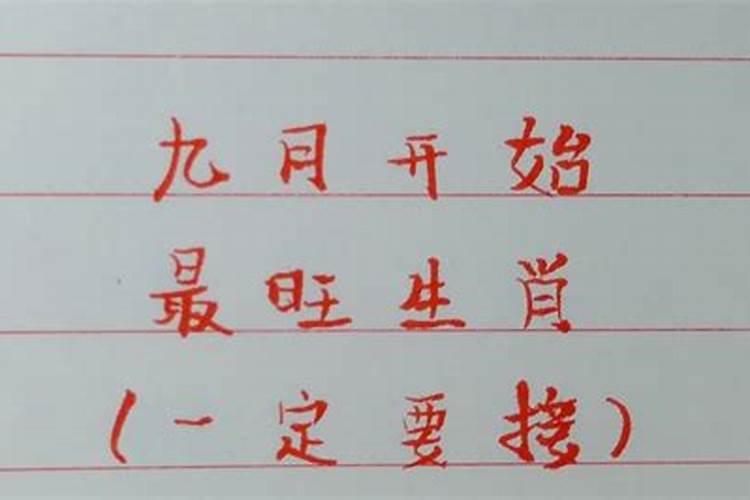 九月开始
最旺生肖
(一定要接)